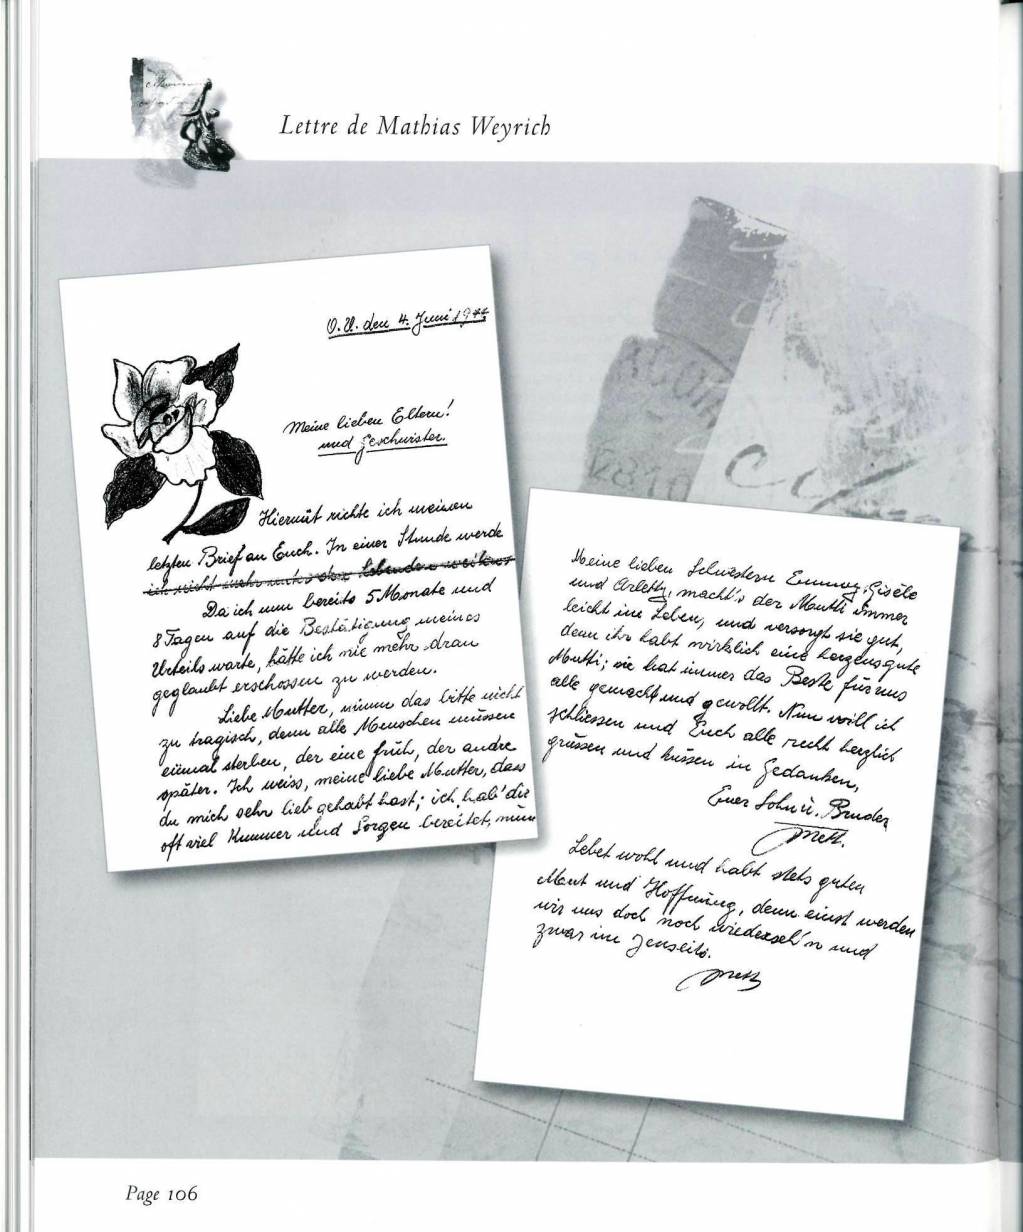 Lettre de Mathias Weyrich
O. U. den 4. Juni 1944
Meine lieben Eltern!
und Geschwister.
Hiermit richte ich meinen
letzten Brief an Euch. In einer Stunde werde
ich nicht mehr unter den Lebenden weilen
Da ich nun bereits 5 Monate und
8 Tagen auf die Bestätigung meines
Urteils warte, hätte ich nie mehr dran
geglaubt erschossen zu werden.
Liebe Mutter, nimm das bitte nicht
zu tragisch, denn alle Menschen müssen
einmal sterben, der eine früh, der andre
später. Ich weiss, meine liebe Mutter, dass
du mich sehr lieb gehabt hast; ich hab' dir
oft viel Kummer und Sorgen bereitet, nun
Meine lieben Schwestern Emmy, Gisèle
und Arletty, macht's der Mutti immer
leicht im Leben, und versorgt sie gut,
denn ihr habt wirklich eine herzensgute
Mutti; sie hat immer das Beste für uns
alle gemacht und gewollt. Nun will ich
schliessen und Euch alle recht herzlich
grüssen und küssen in Gedanken,
Euer Sohn u. Bruder
Mett.
Lebet wohl und habt stets guten
Mut und Hoffnung, denn einst werden
wir uns doch noch wiederseh'n und
zwar im Jenseits.
Mett
Page 106